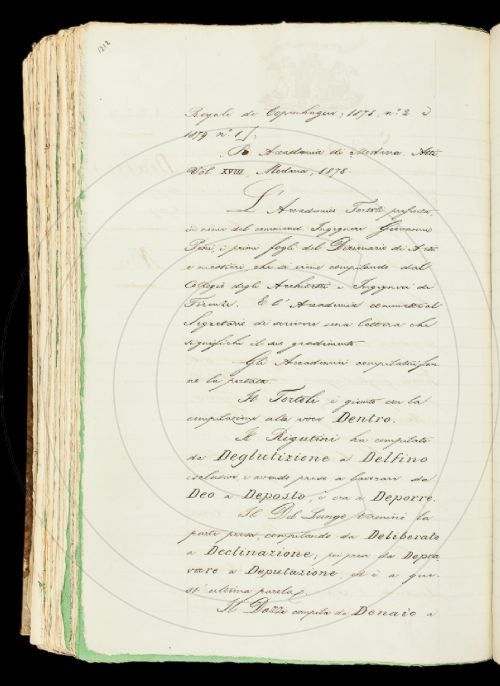 1212
Royale de Copenhague, 1878, n.° 2 e
1879 n.° 1.
R. Accademia di Modena. Atti
Vol. XVIII, Modena, 1878.
L'Accademico Tortoli presenta,
in nome del commend. Ingegnere Giovanni
i primi fogli del Dizionario di Arti
e mestieri, che si viene compilando dal
Collegio degli Architetti e Ingegneri di
Firenze. E l'Accademia commette al
Segretario di scrivere una lettera che
significhi il suo gradimento.
Gli Accademici compilatori fan-
no la portata.
Il Tortoli è giunto con la
compilazione alla voce Dentro.
Il Rigutini ha compilato
da Deglutizione a Delfino
esclusive, e avendo preso a lavorare da
Deo a Deposto, è ora a Deporre.
Il Del Lungo terminò la
parte presa, compilando da Deliberato
a Declinazione; poi prese da Depra-
vare a Deputazione, ed è a que-
st'ultima parola.
Il Dazzi compila da Denaio a